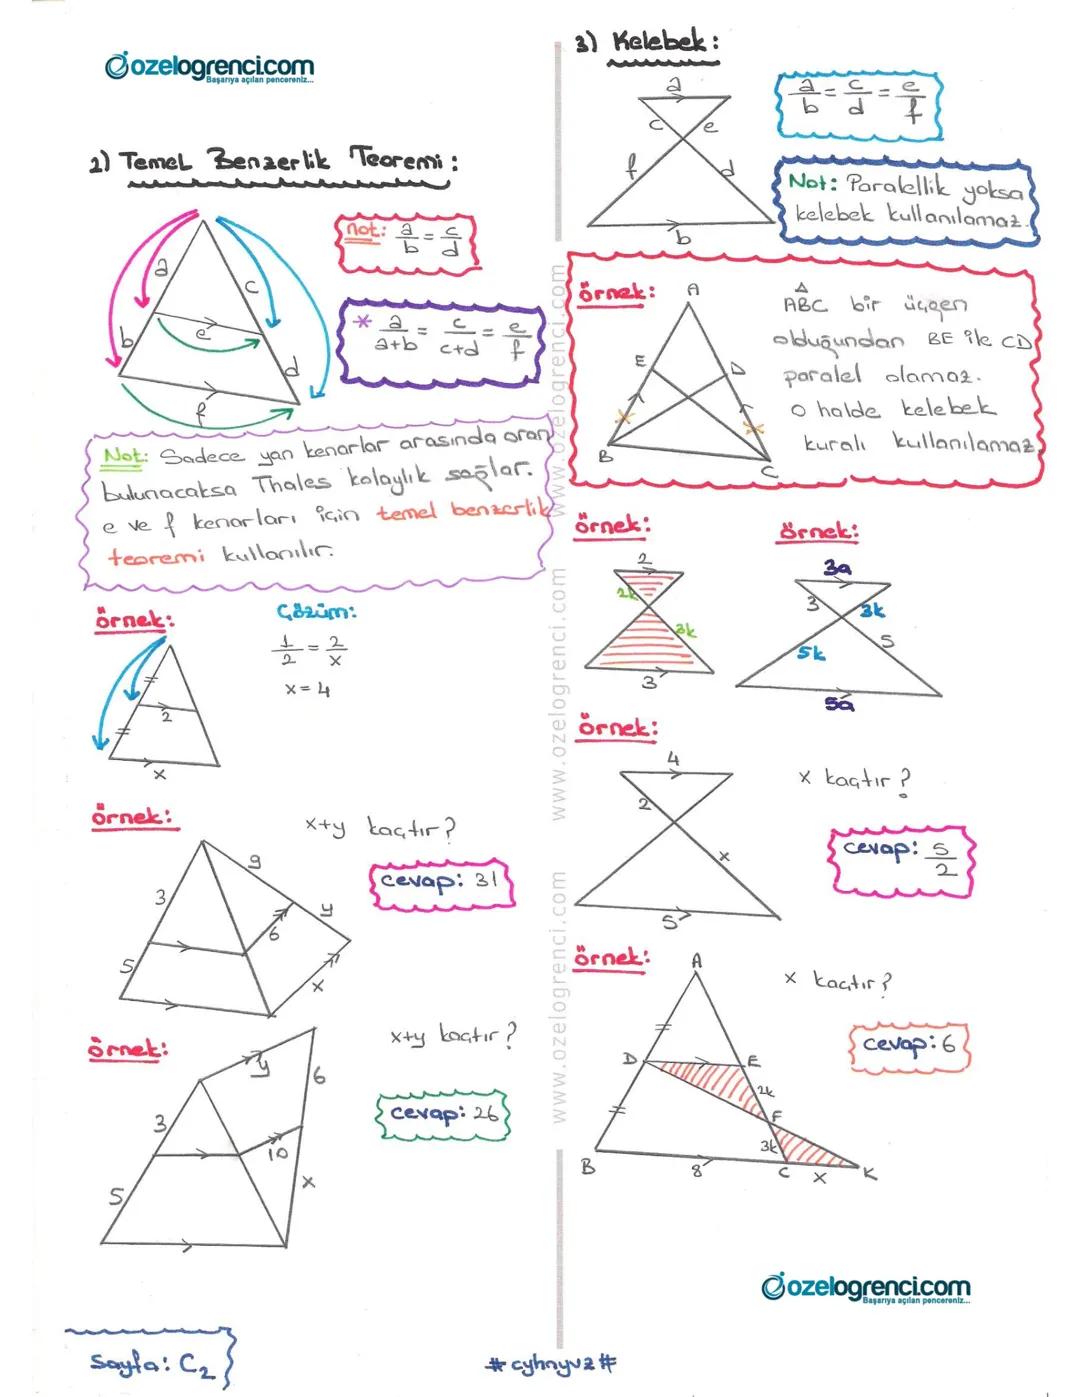 ozelogrenci.com
Başarıya açılan pencereniz...
2) Temel Benzerlik Teoremi:
a
b
c
d
e
f
not: a/b = c/d
* a/a+b = c/c+d = e/f
Not: Sadece yan kenarlar arasında oran
bulunacaksa Thales kolaylık sağlar.
e ve f kenarları için temel benzerlik
teoremi kullanılır.
örnek:
2
x
Çözüm:
1/2 = 2/x
x = 4
örnek:
x+y kaçtır?
cevap: 31
3
5
9
y
6
x
örnek:
x+y kaçtır?
cevap: 26
3
5
y
6
10
x
Sayfa: C2
3) Kelebek:
a
c
e
f
d
b
a/b = c/d = e/f
Not: Paralellik yoksa
kelebek kullanılamaz.
örnek:
A
E
D
B
C
ABC bir üçgen
olduğundan BE ile CD
paralel olamaz.
O halde kelebek
kuralı kullanılamaz
örnek:
2
2k
3k
3
örnek:
3a
3
3k
5k
5
5a
örnek:
4
2
x
5
x kaçtır?
cevap: 5/2
örnek:
A
D
E
2k
F
3k
B
8
C
x
K
x kaçtır?
cevap: 6
ozelogrenci.com
Başarıya açılan pencereniz...
www.ozelogrenci.com www.ozelogrenci.com www.ozelogrenci.com
# cyhnyvz #